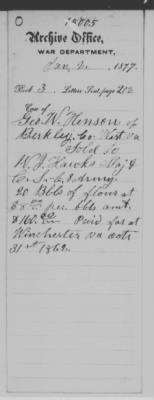 18005
Archive Office,
WAR DEPARTMENT,
Jan 2 1877.
Book 3 Letters Sent, page 212
Case of
Geo. W. Henson of
Berkley Co West va
Sold to
W J Hawks Maj &
C. S. C. S Army
20 Bbls of flour at
$8.00 per bbls amt
$160.00 Paid for at
Winchester va octr
31st 1862